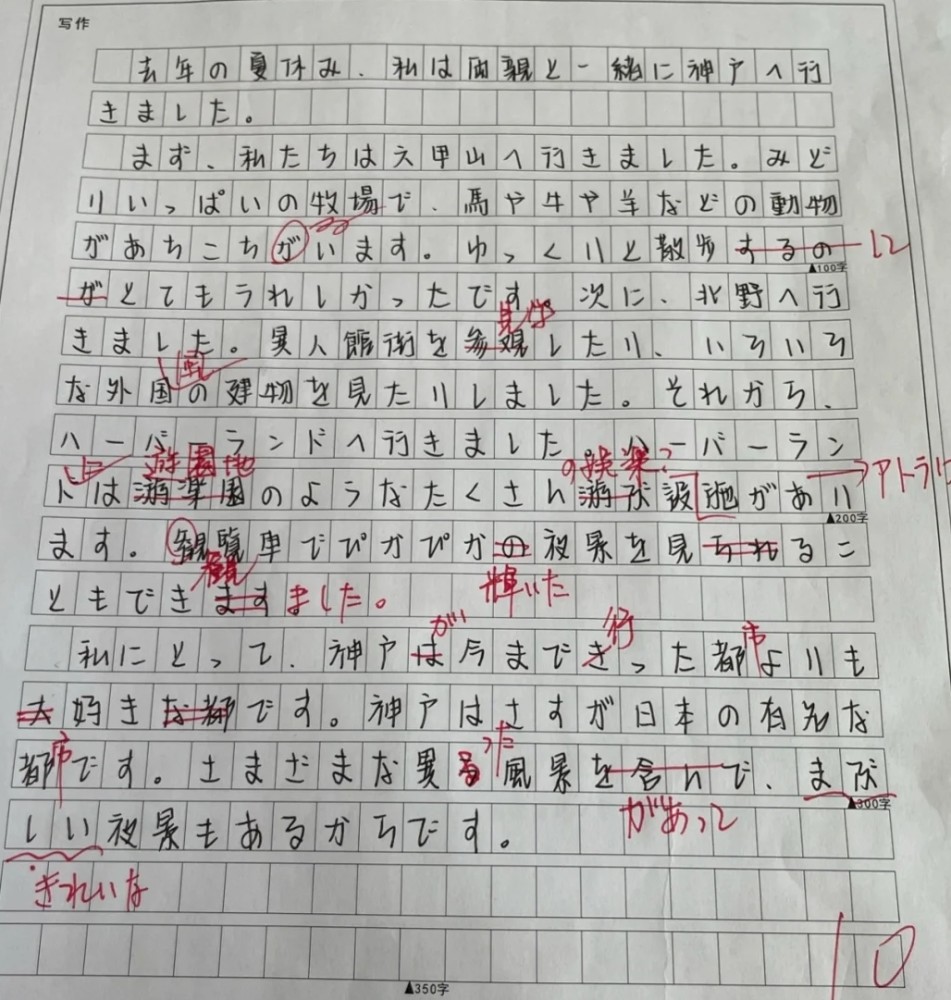 写作
去年の夏休み、私は両親と一緒に神戸へ行
きました。
まず、私たちは六甲山へ行きました。みど
りいっぱいの牧場で、馬や牛や羊などの動物
があちこちがいます。ゆっくりと散歩するの
して
▲100字
がとてもうれしかったです。次に、北野へ行
見学
きました。異人館街を参観したり、いろいろ
風
な外国の建物を見たりしました。それから、
ハーバーランドへ行きました。ハーバーラン
に
遊園地
の娯楽?
アトラ
ドは游楽園のようなたくさん游び設施があり
▲200字
ます。観覧車でぴかぴかの夜景を見られるこ
観
輝いた
ともできますました。
が
行
市
私にとって、神戸は今まできった都よりも
大好きな都です。神戸はさすが日本の有名な
市
った
都です。さまざまな異る風景を含んで、まぶ
があって
▲300字
しい夜景もあるからです。
きれいな
10
▲350字